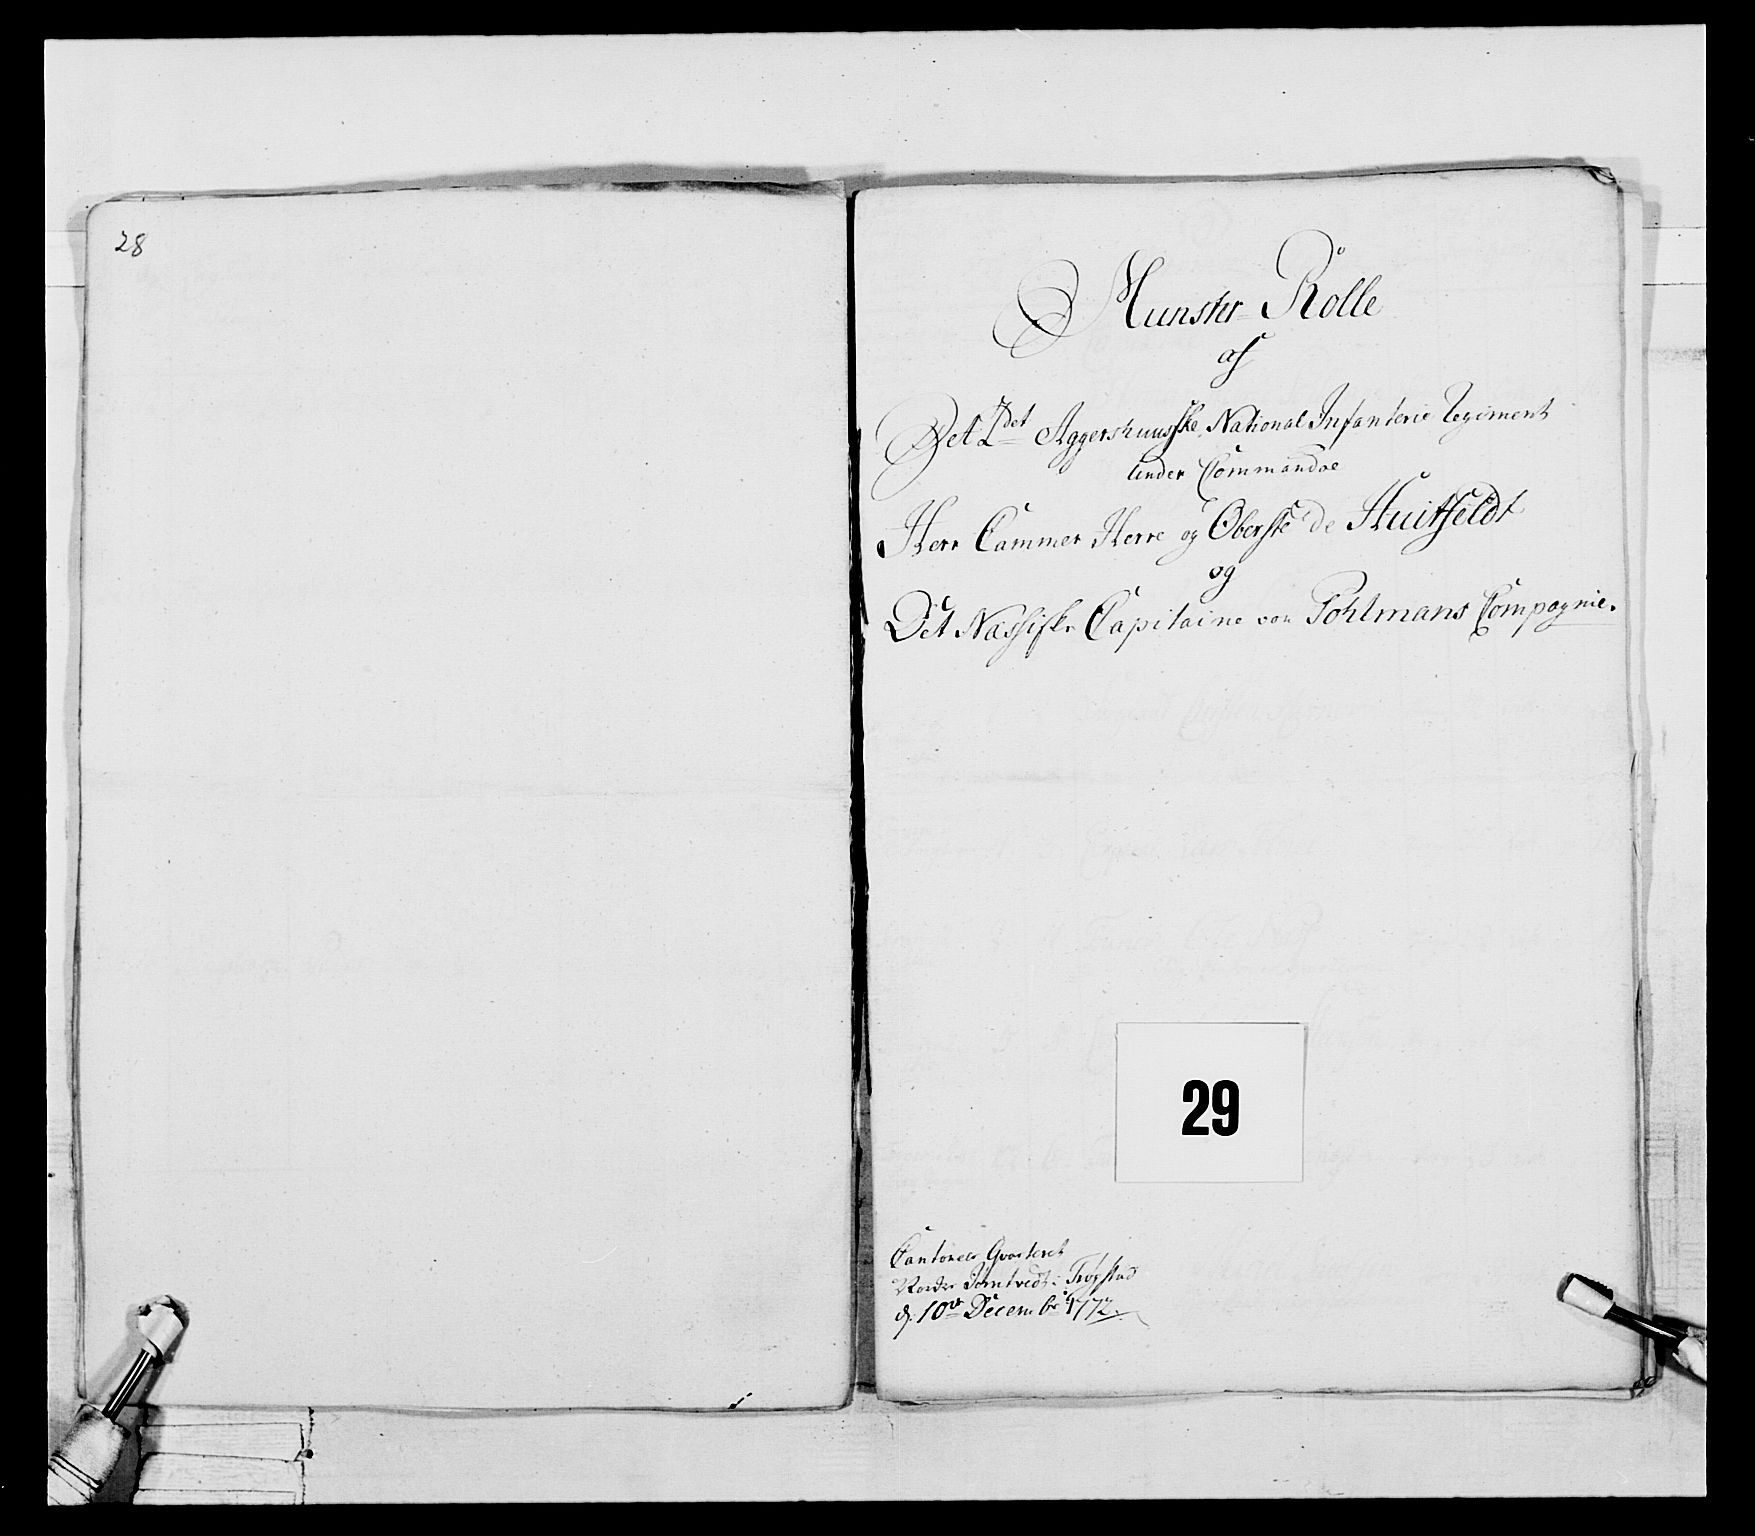 28
Munster Rolle
af
Det 2det Aggershuusske National Infanterie Regiment
under Commandoe
Herr Cammer Herre og Oberste de Huitfeldt
og
Det Næssiske Capitaine von Pohlmans Compagnie.
29
Cantoneer Qvarteret
Nordre Jomtvedt i Trøgstad
d. 10de Decembr 1772.